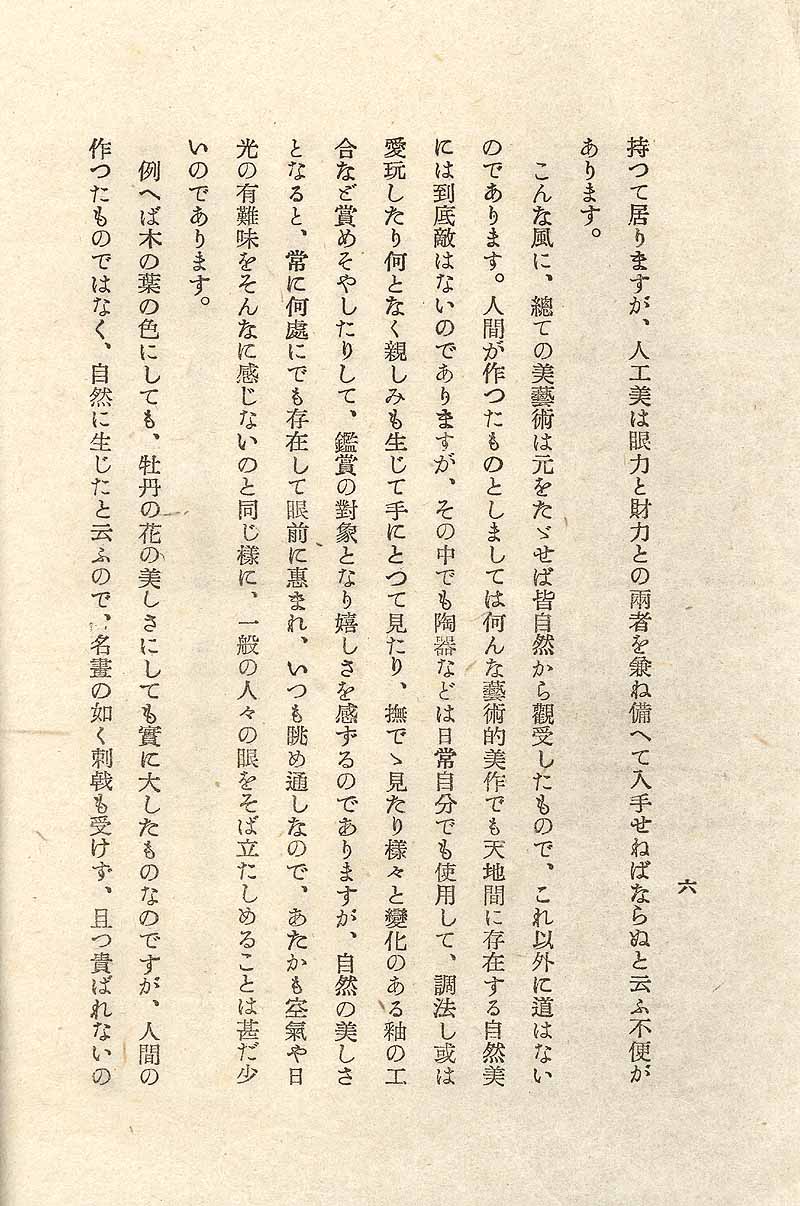 六
持つて居りますが、人工美は眼力と財力との兩者を兼ね備へて入手せねばならぬと云ふ不便が
あります。
こんな風に、總ての美藝術は元をたゞせば皆自然から觀受したもので、これ以外に道はない
のであります。人間が作つたものとしましては何んな藝術的美作でも天地間に存在する自然美
には到底敵はないのでありますが、その中でも陶器などは日常自分でも使用して、調法し或は
愛玩したり何となく親しみも生じて手にとつて見たり、撫でゝ見たり樣々と變化のある釉の工
合など賞めそやしたりして、鑑賞の對象となり嬉しさを感ずるのでありますが、自然の美しさ
となると、常に何處にでも存在して眼前に惠まれ、いつも眺め通しなので、あたかも空氣や日
光の有難味をそんなに感じないのと同じ樣に、一般の人々の眼をそば立たしめることは甚だ少
いのであります。
例へば木の葉の色にしても、牡丹の花の美しさにしても實に大したものなのですが、人間の
作つたものではなく、自然に生じたと云ふので、名畫の如く刺戟も受けず、且つ貴ばれないの